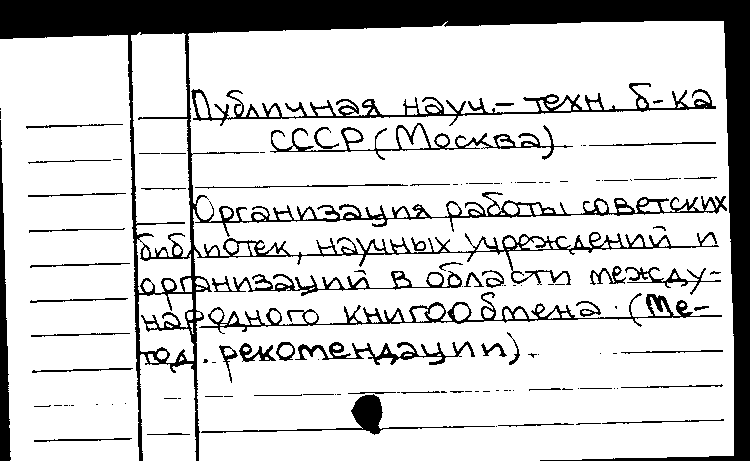 Публичная науч.- техн. б-ка
СССР (Москва)
Организация работы советских
библиотек, научных учреждений и
организаций в области между-
народного книгообмена. (Ме-
тод. рекомендации).